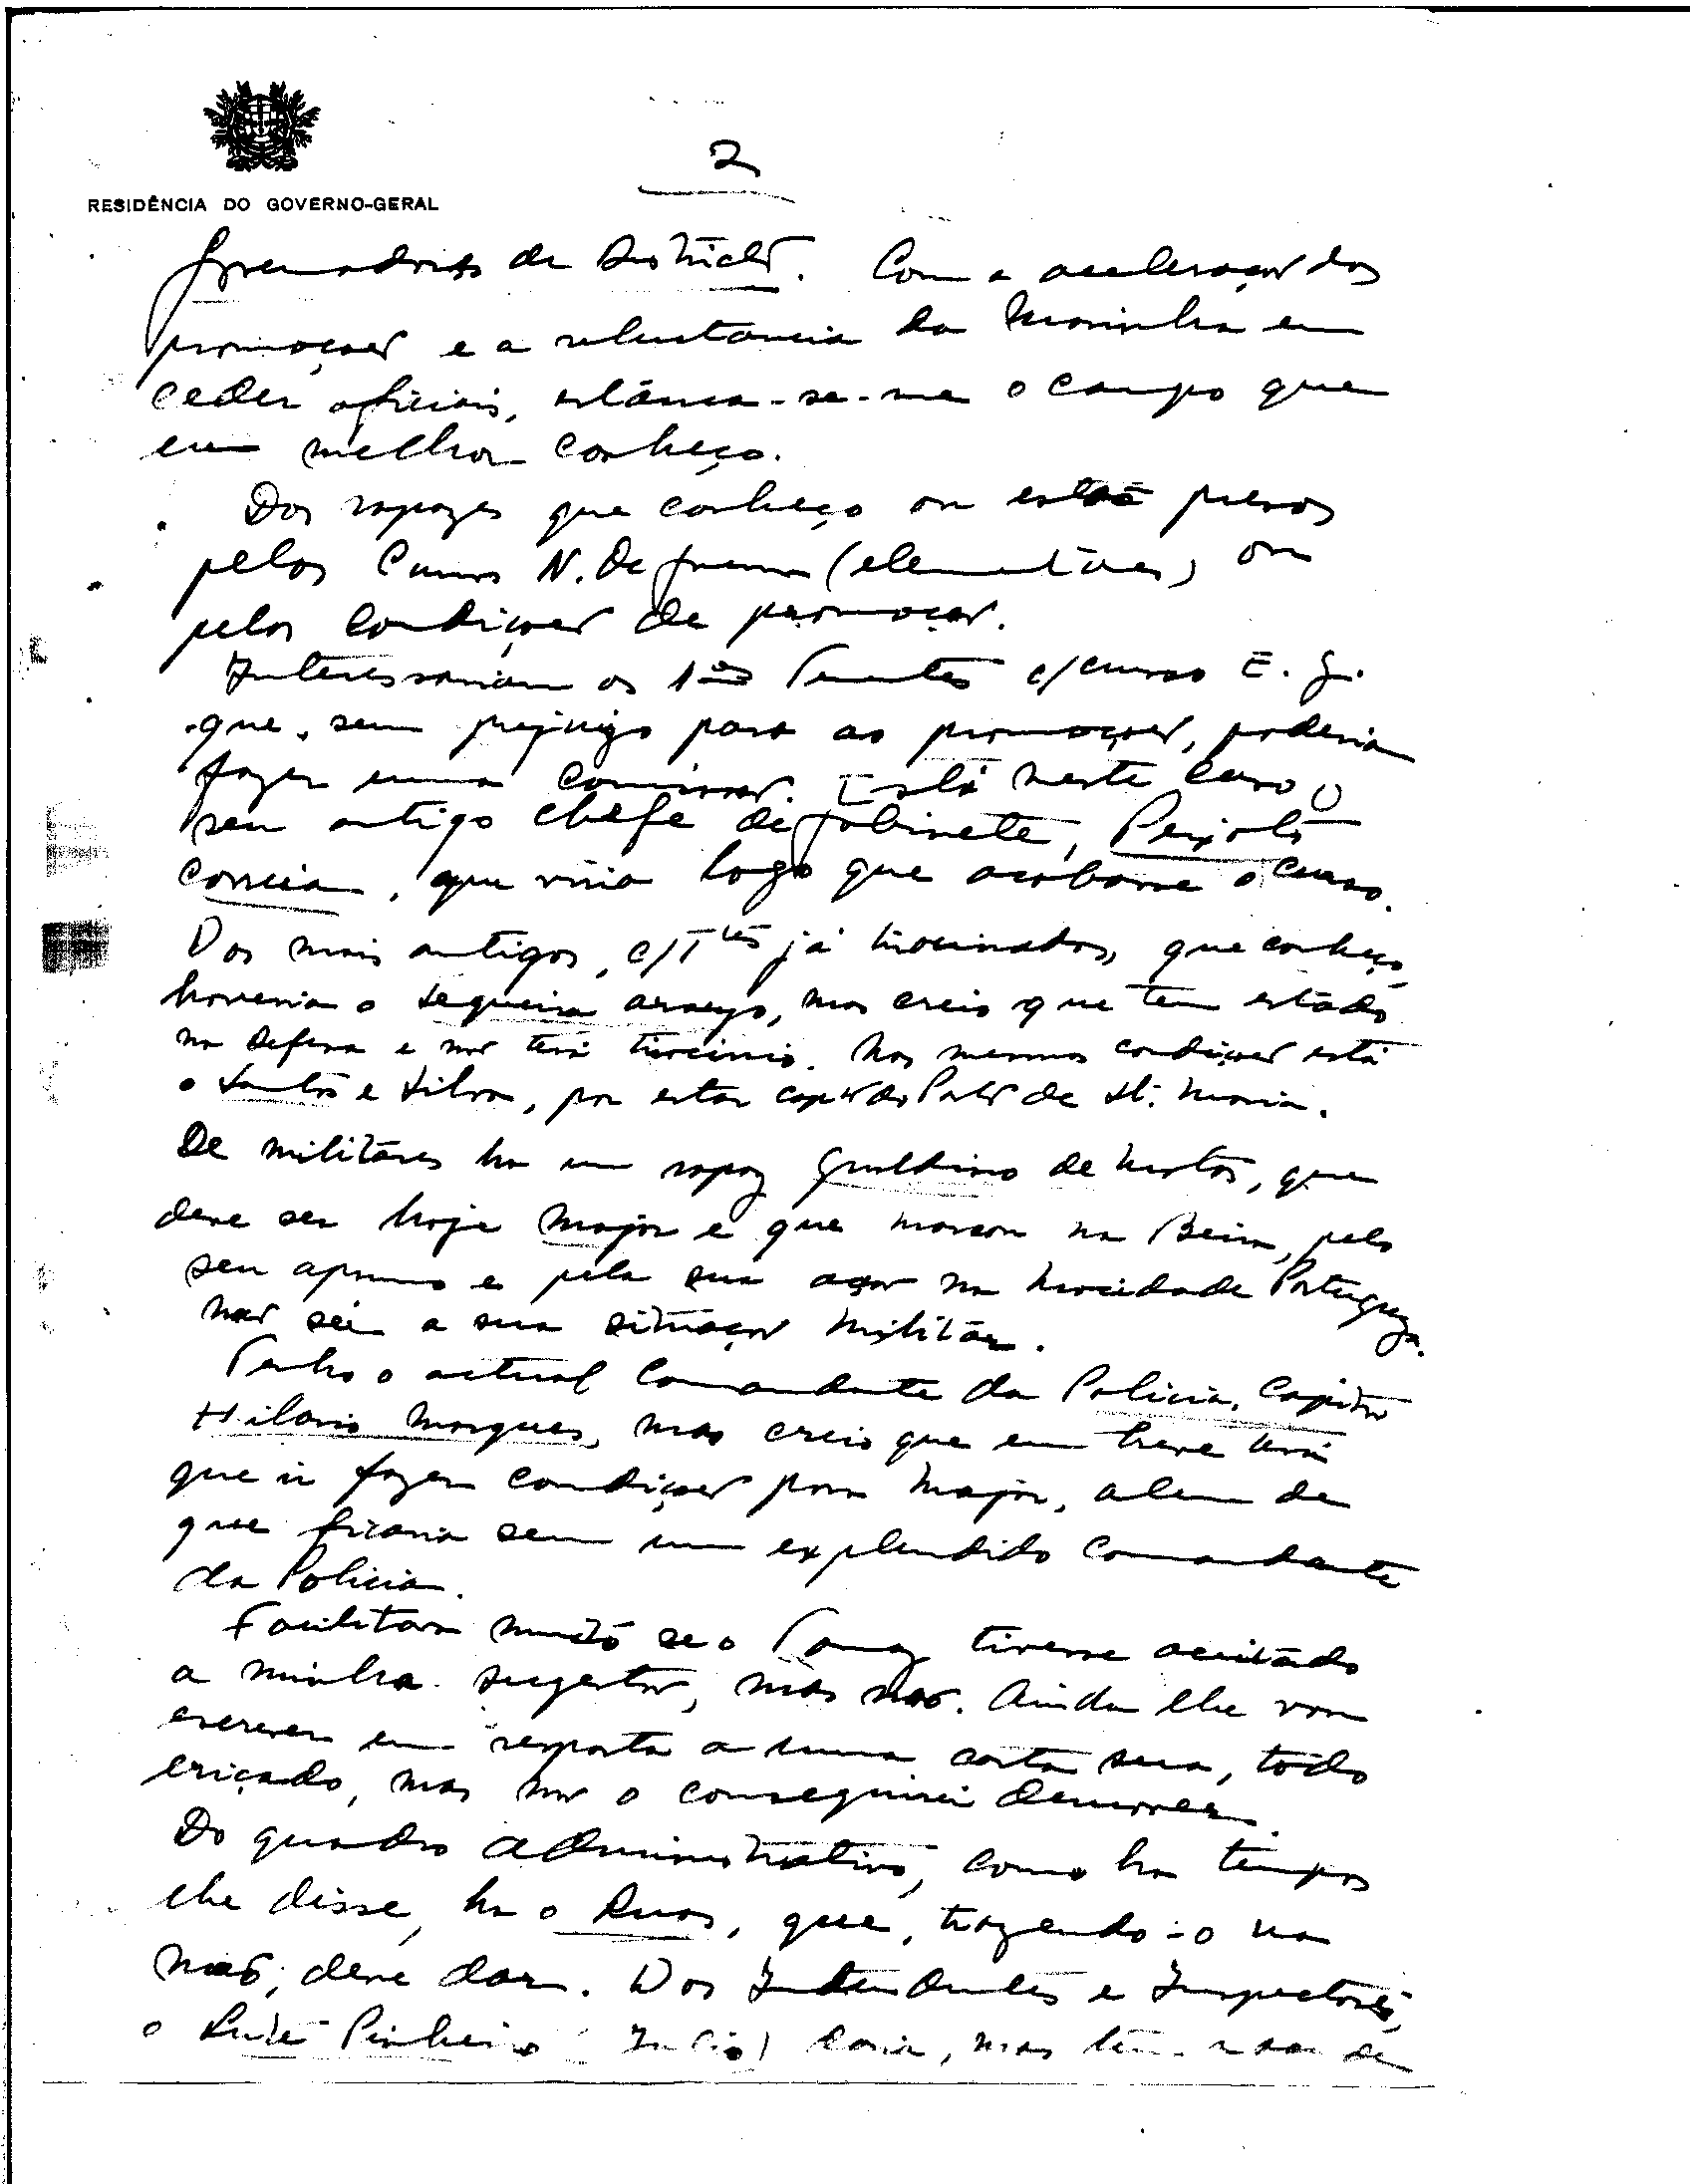 RESIDÊNCIA DO GOVERNO-GERAL
2
Governadores de Districto. Com a aceleração das
promoções e a relutancia da Marinha em
ceder oficiais, estânca-se-me o campo que
eu melhor conheço.
Dos rapazes que conheço ou estão presos
pelos Cursos N. De Guerra (elementares) ou
pelas condições de promoção.
Interessariam os 1os Tenentes c/curso E. G.
que, sem prejuizo para as promoções, poderia
fazer uma comissão. Está neste caso o
seu antigo chefe de gabinete, Peixoto
Correia, que viria logo que acabasse o curso.
Dos mais antigos, c/Ttes já tirocinados, que conheço,
haveria o Sequeira Araujo, mas creio que tem estado
na Defesa e não terá tirocinio. Nas mesmas condições está
o Santos e Silva, por estar capitão do Porto de St. Maria.
De militares ha um rapaz Gualdino de Matos, que
deve ser hoje Major e que marcou na Beira, pelo
seu aprumo e pela sua acção na Mocidade Portugueza.
Não sei a sua situação militar.
Tenho o actual Comandante da Policia, Capitão
Hilario Marques, mas creio que em breve terá
que ir fazer condições para Major, alem de
que ficaria sem um explendido comandante
da Policia.
Facilitava muito se o Tomaz tivesse aceitado
a minha sugestão, mas não. Ainda lhe vou
escrever em resposta a uma carta sua, todo
eriçado, mas não o conseguirei demover.
Do quadro administrativo, como ha tempos
lhe disse, ha o Ruas, que, trazendo-o na
mão, deve dar. Dos Intendentes e Inspectores,
o Pinheiro daria, mas